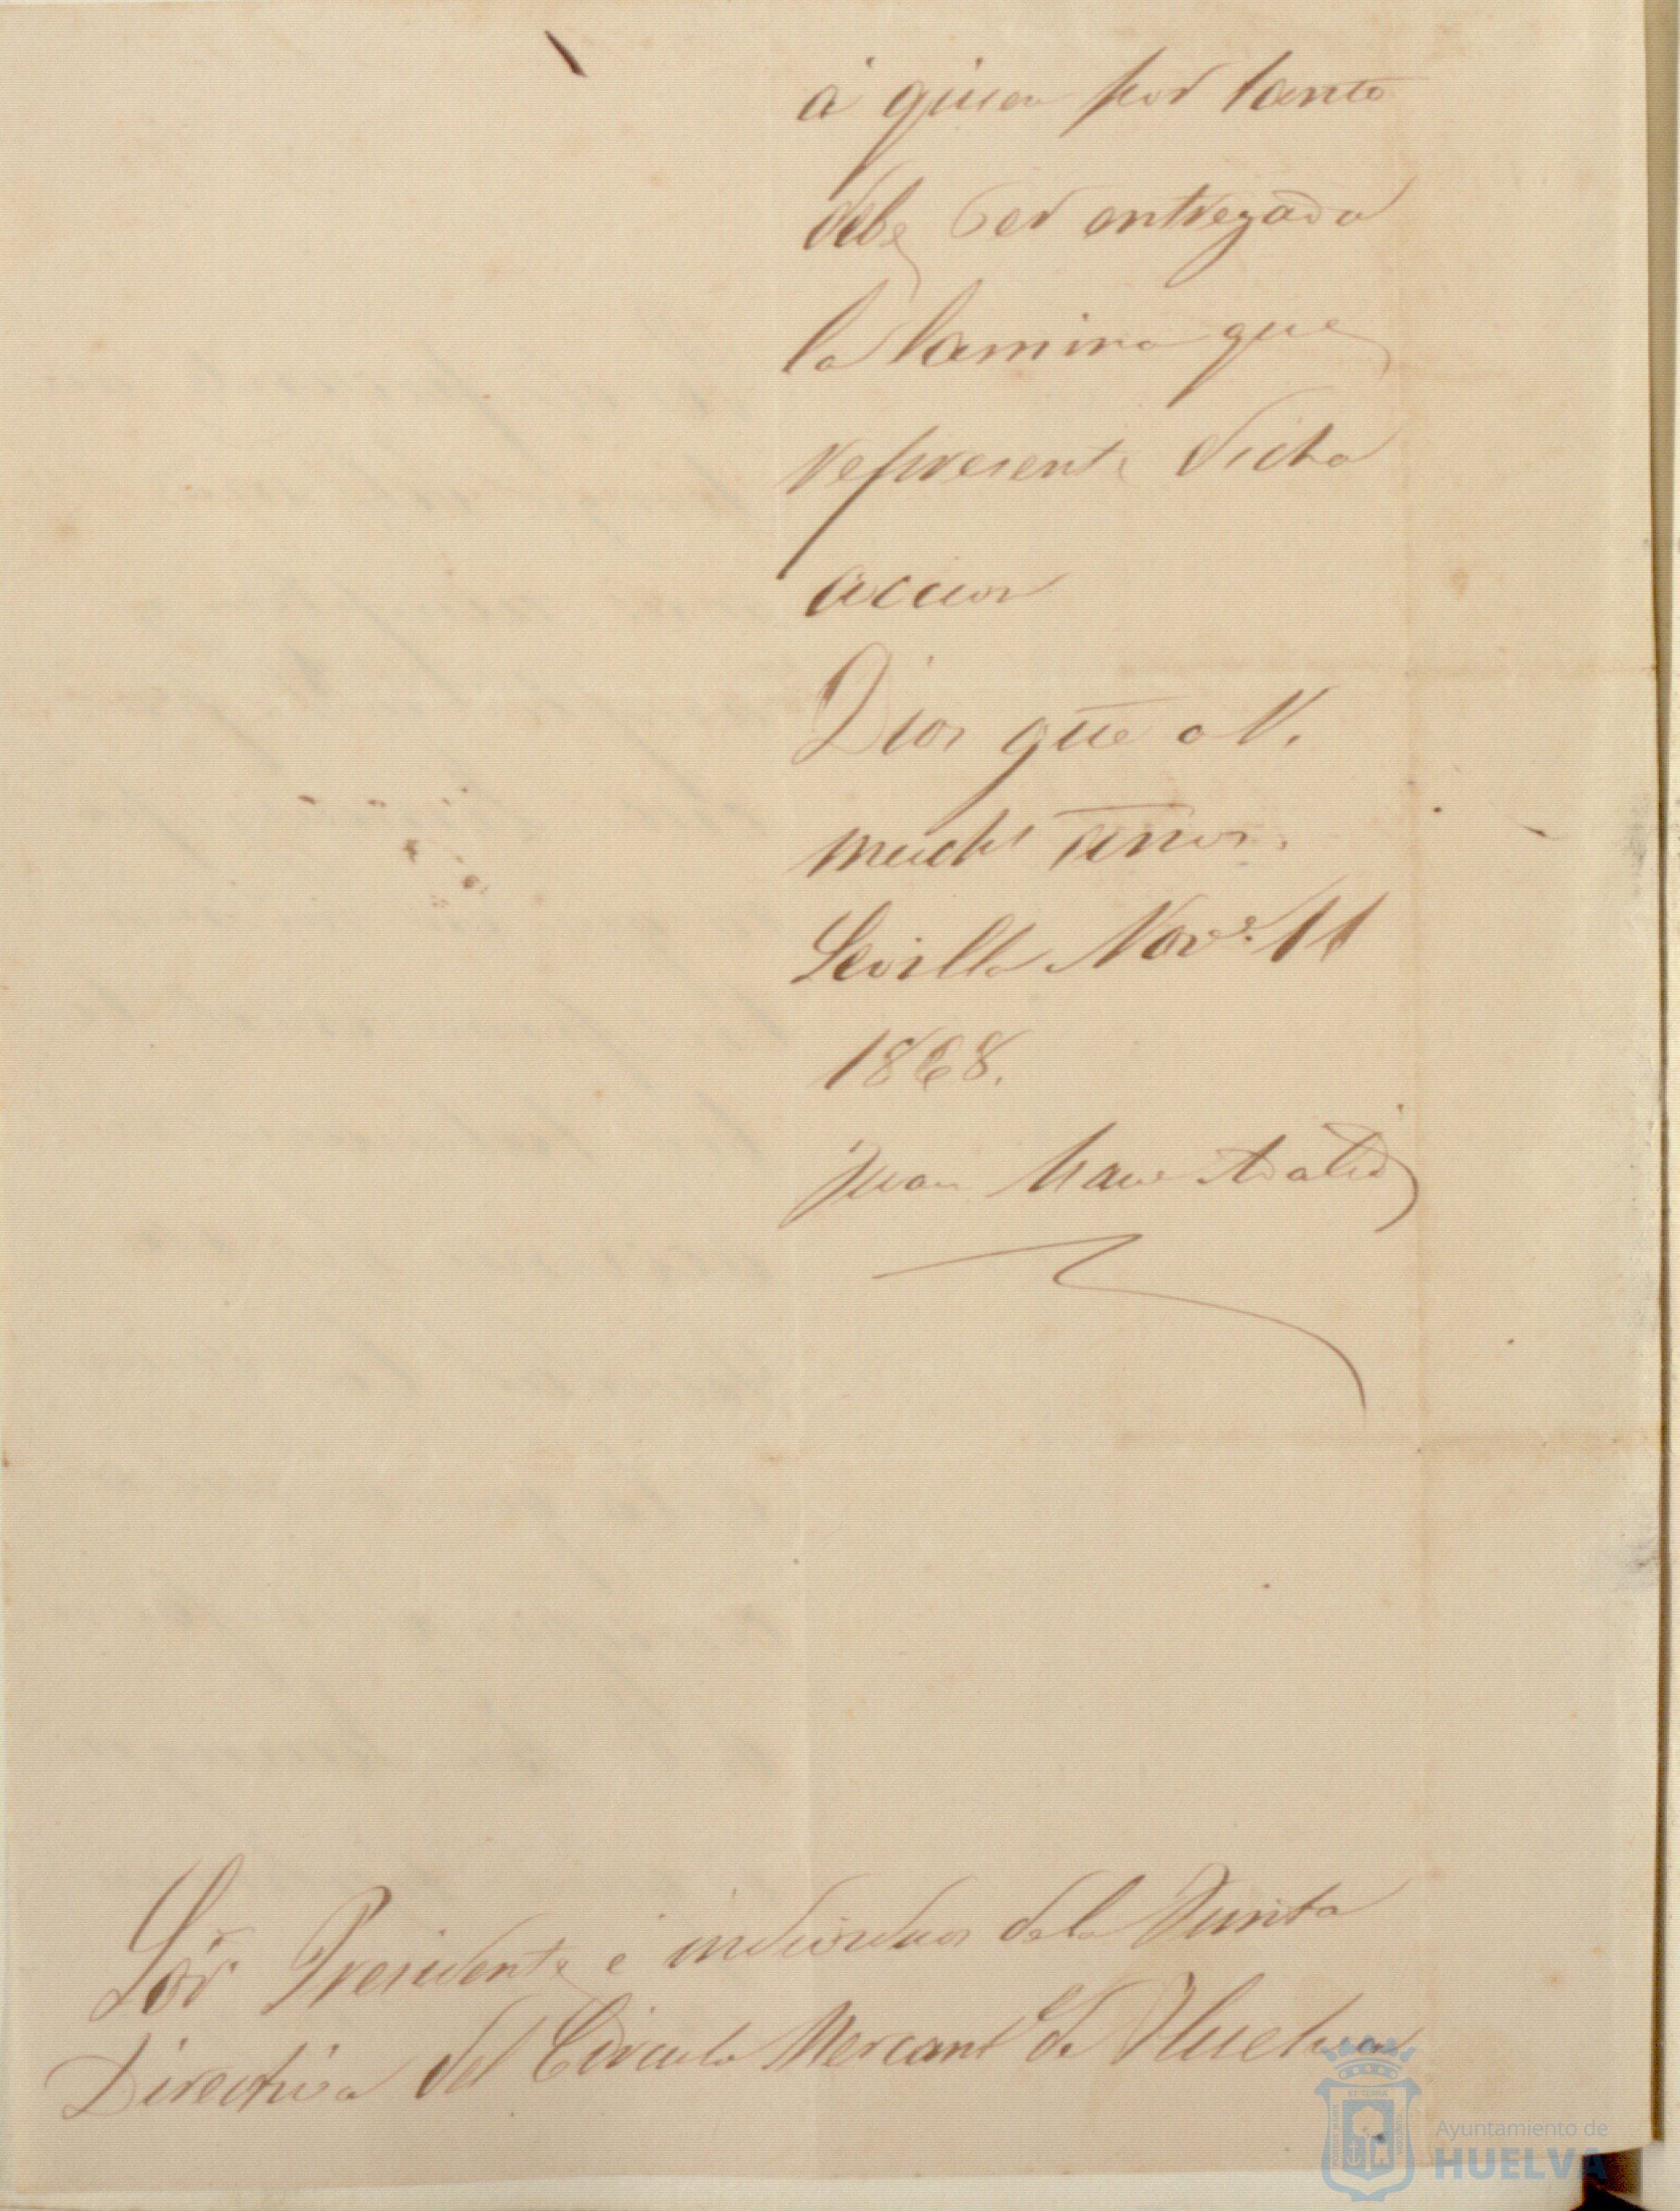 á quien por tanto
debe ser entregada
la lamina que
represente dicha
accion
Dios gūe a V.
muchs años.
Sevilla Nove. 11
1868.
Juan
Sor Presidente é individuos dela Junta
Directiva del Circulo Mercantl de Huelva
Ayuntamiento de
HUELVA